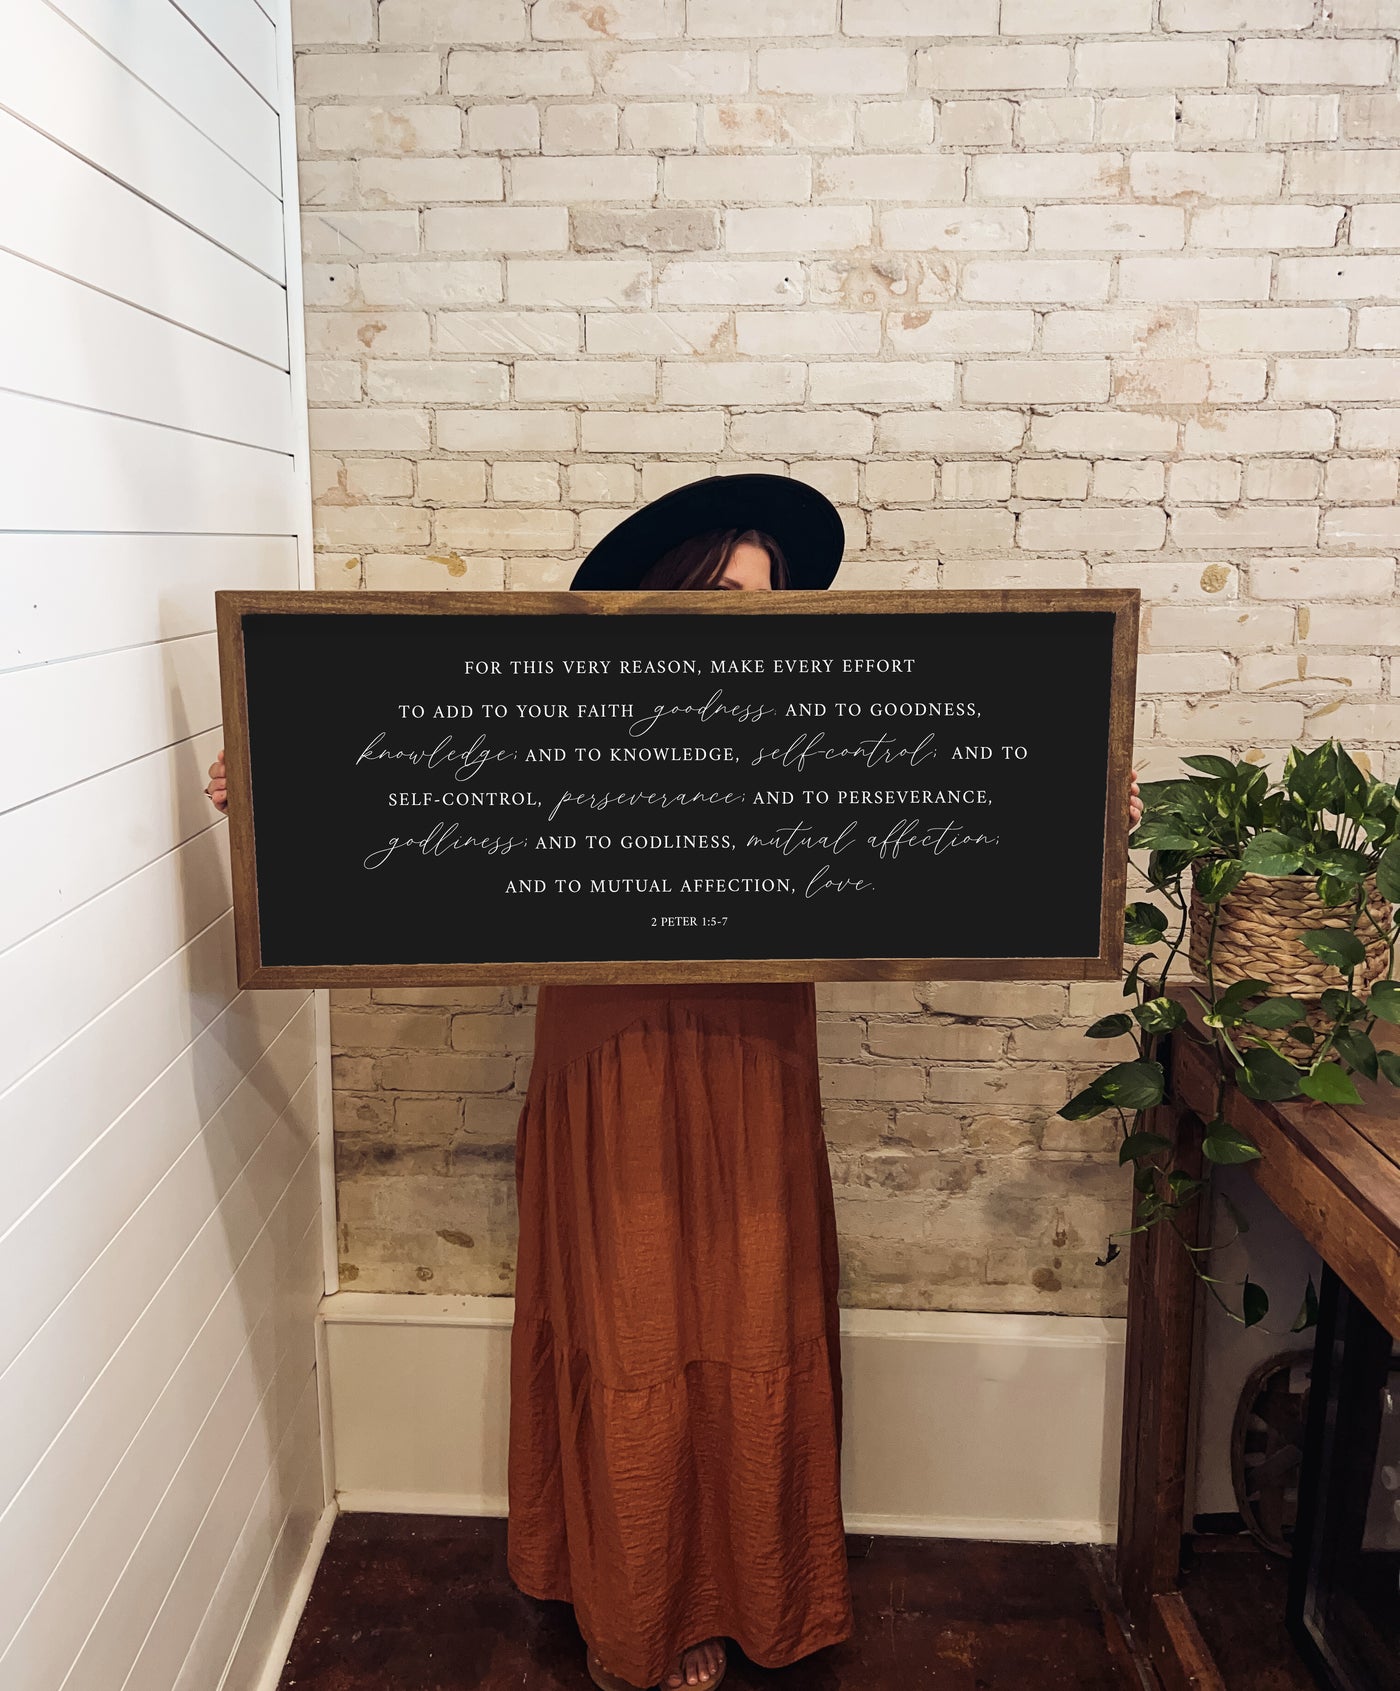 FOR THIS VERY REASON, MAKE EVERY EFFORT
TO ADD TO YOUR FAITH goodness; AND TO GOODNESS,
knowledge; AND TO KNOWLEDGE, self-control; AND TO
SELF-CONTROL, perseverance; AND TO PERSEVERANCE,
godliness; AND TO GODLINESS, mutual affection;
AND TO MUTUAL AFFECTION, love.
2 PETER 1:5-7